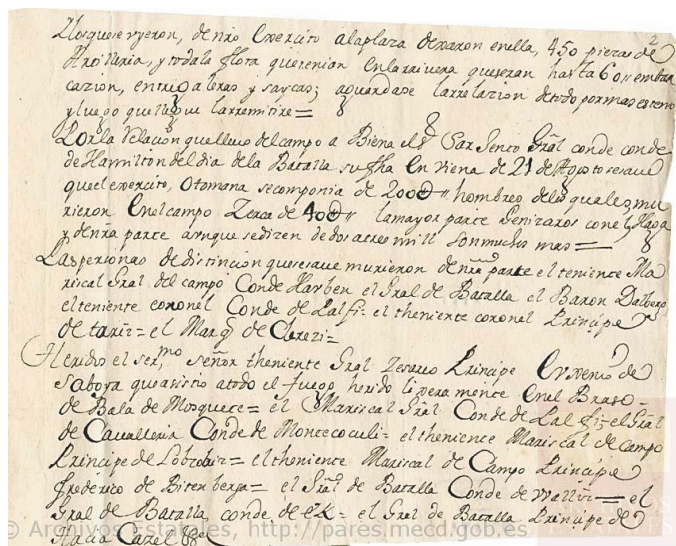 2
Los que se vyeron, de nro Exercito a la plaza dexaron en ella, 450 piezas de
Artilleria, y toda la flota que tenian en la rrivera que seran hasta 60 // embar
cazion, entre galeras y saycas; aguardase la rrelazion de todo por mas extenso
y luego que llegue la rremitire =
Por la Relacion que llevo del campo a Biena el Sarjento Gral conde conde
de Hamilton del dia de la Batalla su fha en Viena de 21 de Agosto se save
que el exercito, Otomana se componia de 200@ // hombres de los quales mu
rieron en el campo Zerca de 40@ // la mayor parte Genizaros con el Haga
y de nra parte aunque se dizen de dos a tres mill son muchos mas =
Las personas de distincion que se save murieron de nra parte el teniente Ma
riscal Gral del campo Conde Harben el Gral de Batalla el Baron Dalberg
el teniente coronel Conde de Lalfi = el theniente coronel Principe
de taxis = el Marq de Clerezi =
Heridos el ser.mo Señor theniente Gral Zesareo Principe Eugenio de
Saboya que asistio a todo el fuego, herido lijeramente en el Brazo
de Bala de Mosquete = el Mariscal Gral Conde de Lalfi = el Gral
de Cavalleria Conde de Montecoculi = el theniente Mariscal de campo
Principe de Lobcobiz = el theniente Mariscal de Campo Principe
frederico de Bitenberga = el Gral de Batalla Conde de Wallis = el
Gral de Batalla conde de ek = el Gral de Batalla Principe de
© Archivos Estatales, http://pares.mecd.gob.es
Hacia Carel &c